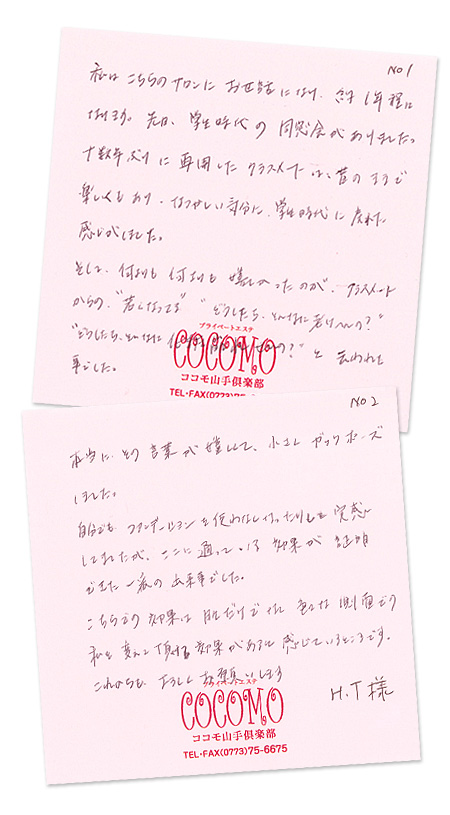 No 1
私はこちらのサロンに お世話になり、約1年程に
なります。先日、学生時代の同窓会がありました。
十数年ぶりに再開したクラスメートは、昔のままで
楽しくもあり、なつかしい気分に、学生時代に戻れた
感じがしました。
そして、何よりも何よりも嬉しかったのが、クラスメート
からの、"若くなってる" "どうしたら、そんなに若いへんの?"
"どうしたら、そんなに の?" と言われた
事でした。
プライベートエステ
COCOMO
ココモ山手倶楽部
TEL・FAX(0773)75-6675
No 2
本当に、その言葉が嬉しくて、小さく ガッツポーズ
しました。
自分でも、ファンデーションを使わなくなったりしも 実感
してましたが、ここに通っている効果が 証明
できた一番の出来事でした。
こちらでの効果は肌だけでなく、色々な側面での
私を変えて頂ける効果があると感じているところです。
これからも、よろしくお願いします
H.T様
プライベートエステ
COCOMO
ココモ山手倶楽部
TEL・FAX(0773)75-6675